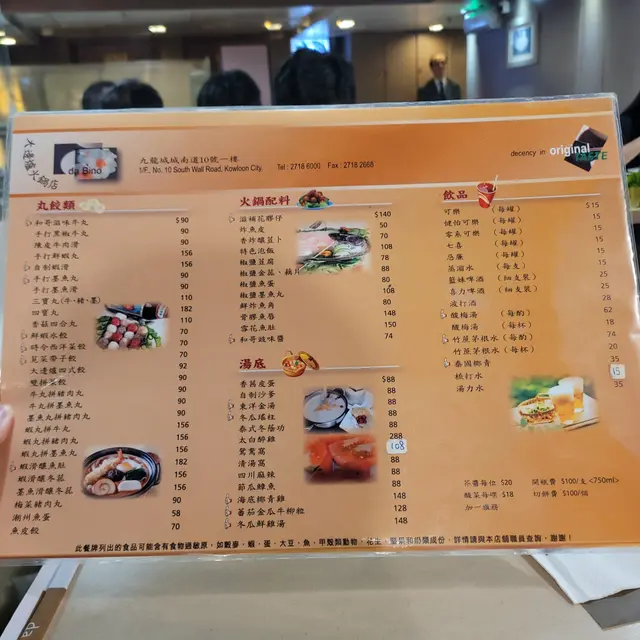 大連爐火鍋店
da Bino
九龍城城南道10號一樓
1/F., No. 10 South Wall Road, Kowloon City.
Tel : 2718 6000 Fax : 2718 2668
decency in original TASTE
丸餃類
和哥滋味牛丸 $90
手打黑椒牛丸 90
陳皮牛肉滑 90
手打鮮蝦丸 156
自制蝦滑 156
手打墨魚丸 90
手打墨魚滑 90
三寶丸(牛‧豬‧墨) 110
四寶丸 182
香菇四合丸 110
鮮蝦水餃 70
時令西洋菜餃 70
莧菜帶子餃 70
大連爐四式餃 92
雙拼菜餃 70
牛丸拼豬肉丸 90
牛丸拼墨魚丸 90
墨魚丸拼豬肉丸 90
蝦丸拼牛丸 156
蝦丸拼豬肉丸 156
蝦丸拼墨魚丸 156
蝦滑釀魚肚 182
蝦滑釀冬菇 156
墨魚滑釀冬菇 156
梅菜豬肉丸 90
潮州魚蛋 58
魚皮餃 70
火鍋配料
滋補花膠仔 $140
炸魚皮 50
香炸釀荳卜 70
特色泡飯 108
椒鹽豆腐 78
椒鹽金菇、藕片 88
椒鹽魚蛋 80
椒鹽墨魚丸 108
鮮炸魚角 80
雪花魚肚 150
和哥豉味醬 74
湯底
香茜皮蛋 $88
自制沙爹 88
東洋金湯 88
冬瓜瑤柱 88
泰式冬蔭功 88
太白醉雞 288
108
鴛鴦窩 88
清湯窩 88
四川麻辣 88
節瓜章魚 88
海底椰青雞 148
蕃茄金瓜牛柳粒 128
冬瓜鮮雞湯 148
飲品
可樂 (每罐) $15
健怡可樂 (每罐) 15
零系可樂 (每罐) 15
七喜 (每罐) 15
忌廉 (每罐) 15
蒸溜水 (每支) 15
藍妹啤酒 (細支裝) 35
喜力啤酒 (細支裝) 35
波打酒 28
酸梅湯 (每酌) 62
酸梅湯 (每杯) 18
竹蔗茅根水 (每酌) 74
竹蔗茅根水 (每杯) 20
泰國椰青 35
梳打水 15
湯力水 35
芥醬每位 $20
酸菜每碟 $18
加一服務
開瓶費 $100/支 <750ml>
切餅費 $100/個
此餐牌列出的食品可能含有食物過敏原，如麩麥、蝦、蛋、大豆、魚、甲殼類動物、花生、堅果和奶類成份，詳情請與本店舖職員查詢，謝謝！